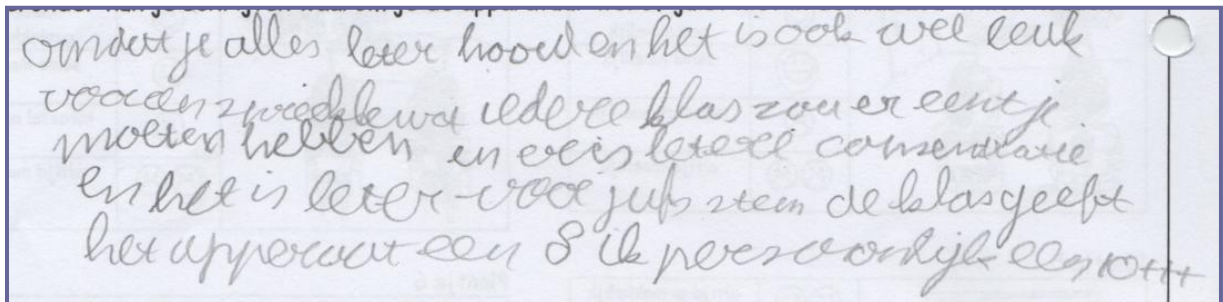 omdat je alles beter hoord en het is ook wel leuk
voor een iedere klas zou er eentje
moeten hebben en er is betere consentratie
en het is beter voor jufs stem de klas geeft
het apparaat een 8 ik persoonlijk een 10+++